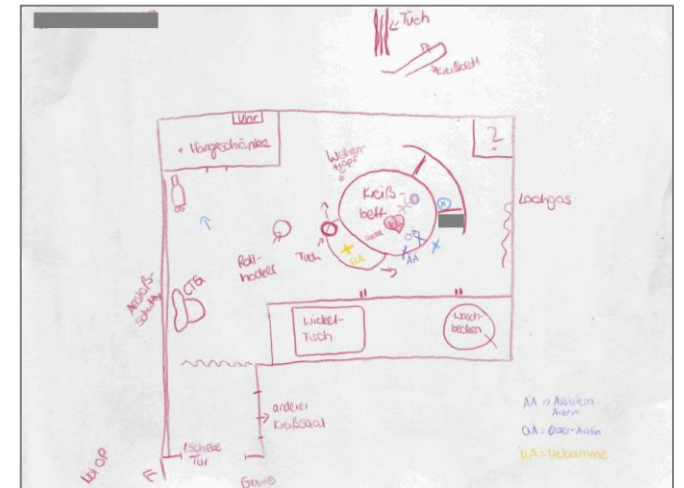 Tuch
Kreißbett
Uhr
Hängeschränke
?
Wehen-
tropf
Kreiß-
bett
Lachgas
Roll-
hocker
Tuch
HA
AA
OA
CTG
Wickel-
Tisch
Wasch-
becken
anderer
Kreißsaal
Tür
AA = Assistenz-
Ärztin
OA = Ober-Ärztin
HA = Hebamme